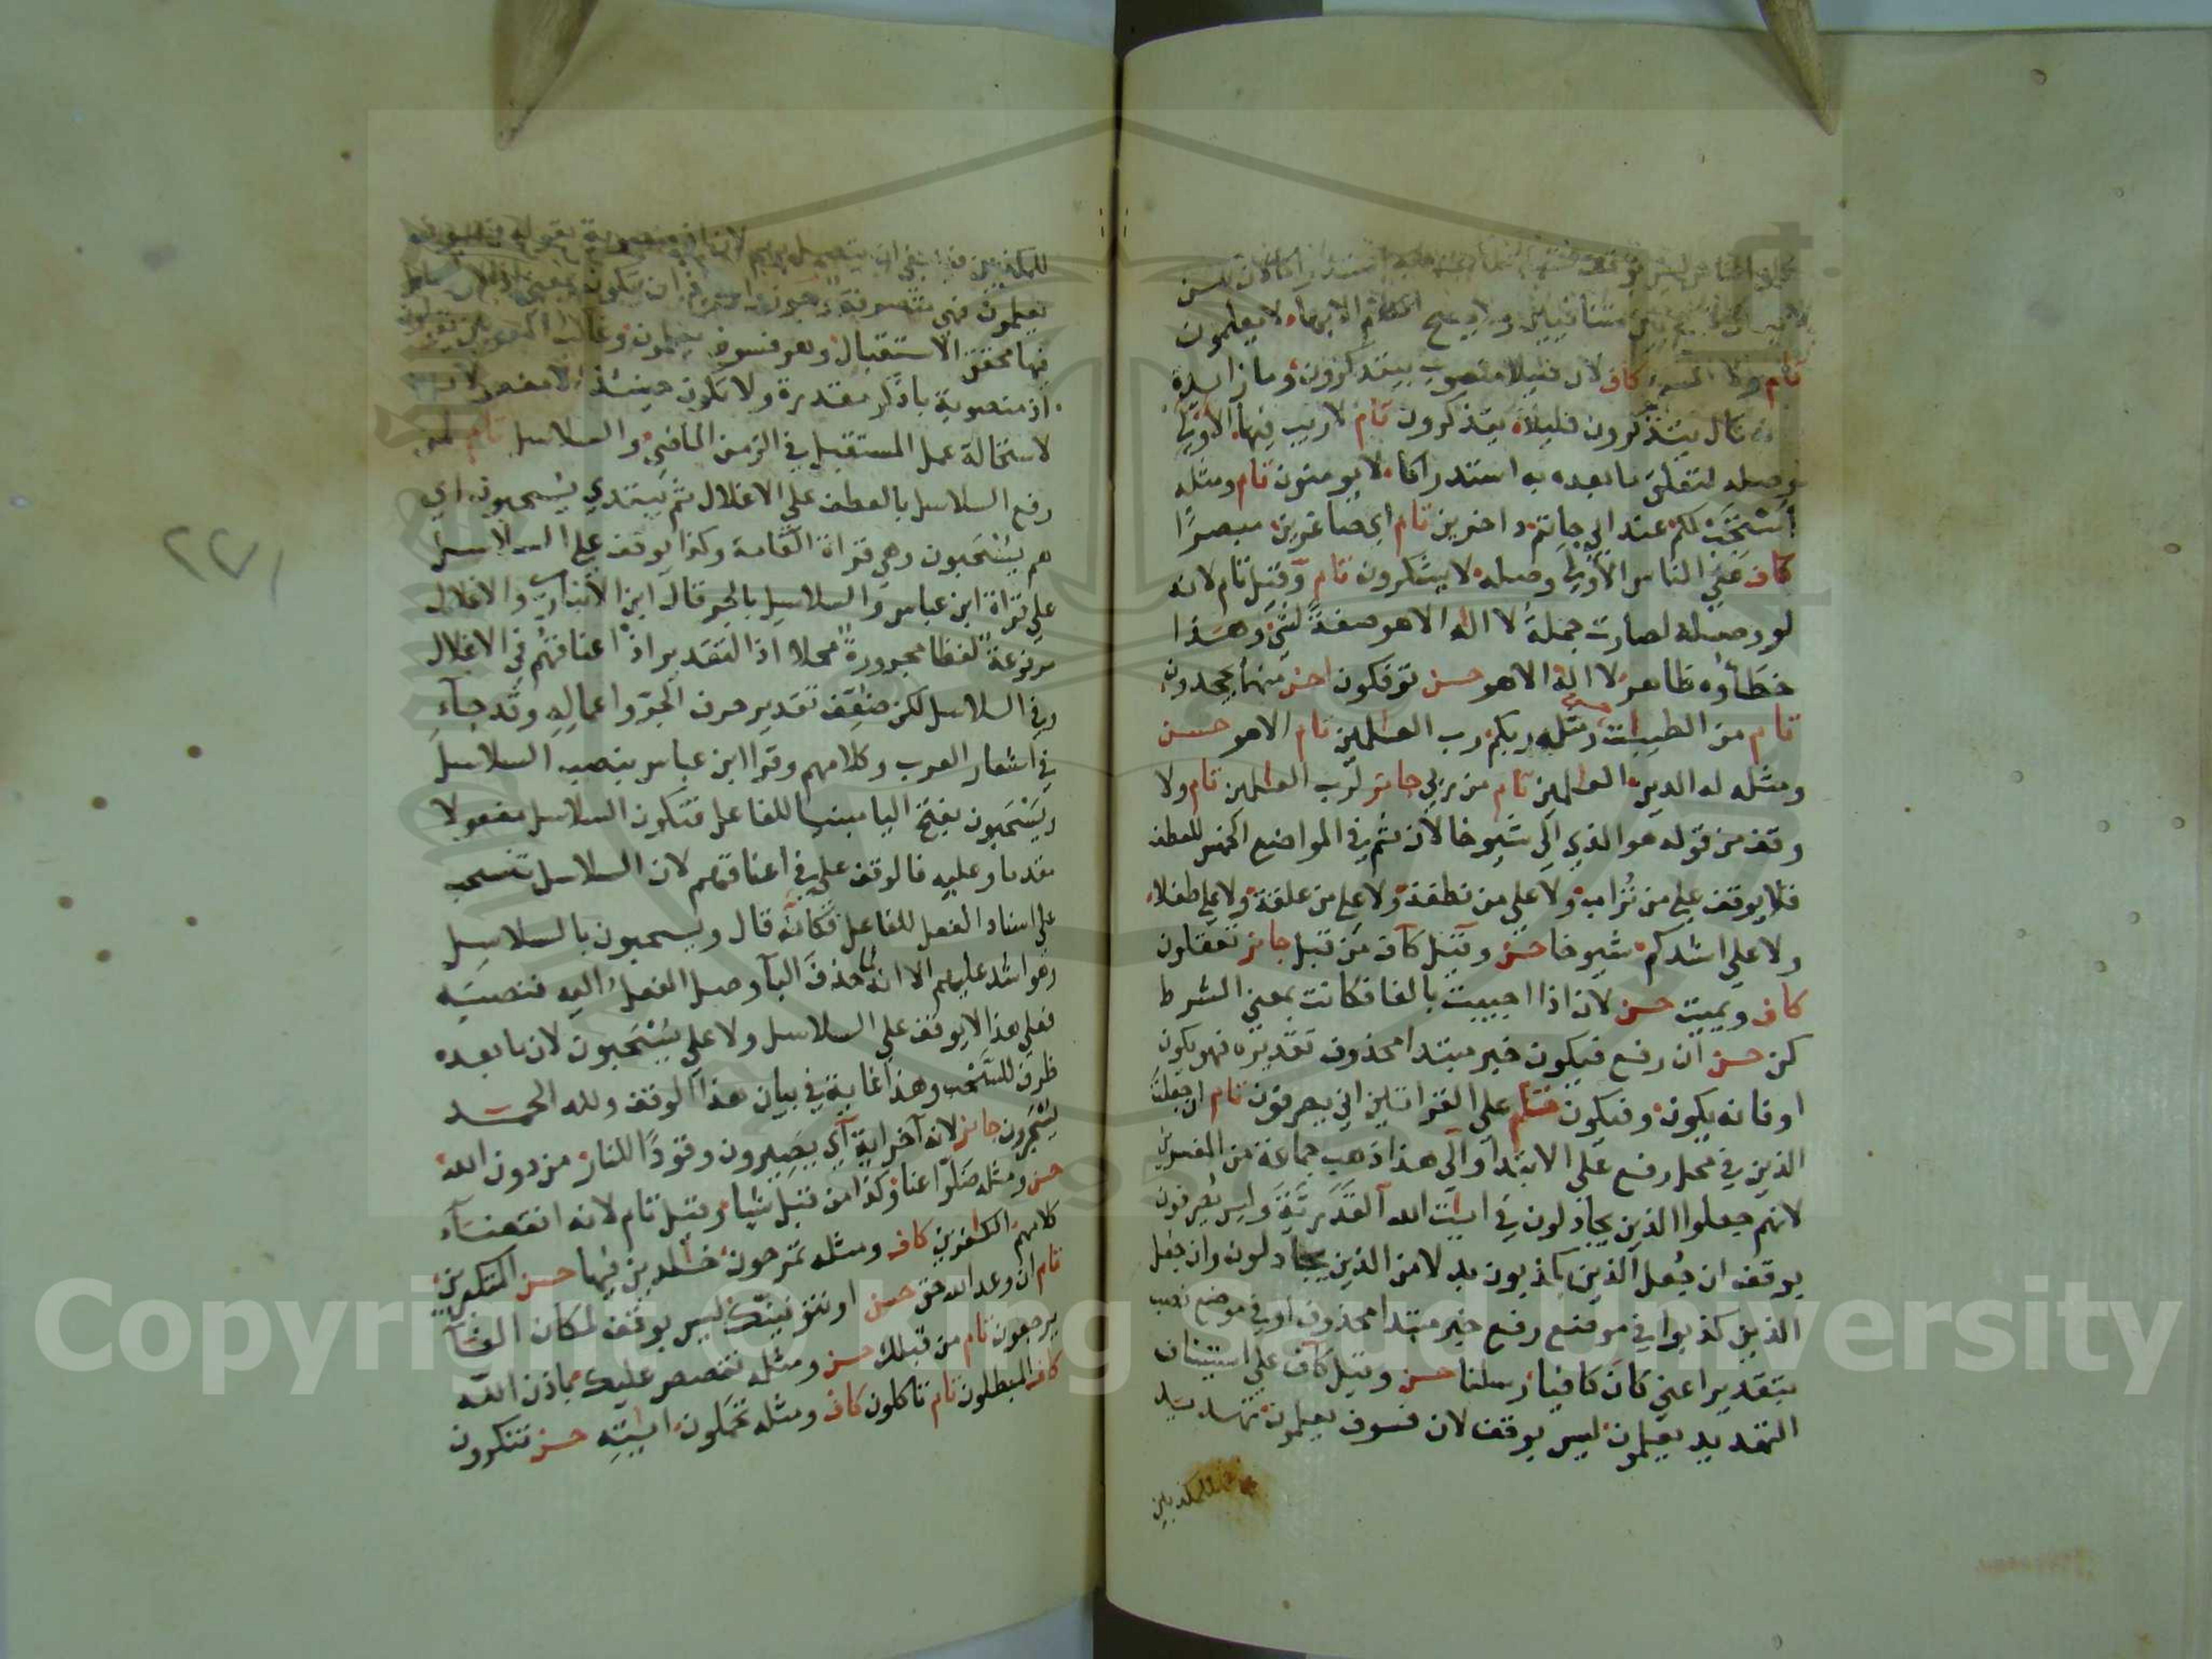 متنافيين ولا يصح الكلام الا بهما، لا يعلمون
تام ولا المسيء كاف لان قليلا منصوب بيتذكرون وما زائدة
قال يتذكرون قليلا، يتذكرون تام لاريب فيها، الاولى
وصله لتعلق ما بعده به استدراكا، لا يومنون تام ومثله
أَسْتَجِبْ لكم عند ابي حاتم، داخرين تام اي صاغرين، مبصرًا
كاف على الناس الاولى وصله، لا يشكرون تام وقيل تام لانه
لو وصله لصارت جملة لا اله الا هو صفةً لشئ، وهذا
خطأوه ظاهر، لا اله الا هو حسن توفكون احسن منهما، يجحدون
تام من الطيبات حسن ومثله ربكم، رب العلمين تام الا هو حسن
ومثله له الدين، العلمين تام من ربي جائز لرب العلمين تام ولا
وقف من قوله هو الذي الى شيوخا لان ثم في المواضع الخمس للعطف
فلا يوقف على من تراب، ولا على من نطفة، ولا على من علقة، ولا على طفلا،
ولا على اشدكم، شيوخا حسن وقيل كاف من قبل جائز تعقلون
كاف ويميت حسن لان اذا اجيبت بالفا فكانت بمعنى الشرط
كن حسن ان رفع فيكون خبر مبتدا محذوف تقديره فهو يكون
او فانه يكون، وفيكون تام على القراتين اني يصرفون تام ان جعلت
الذين في محل رفع على الابتدا والى هذا ذهب جماعة من المفسرين
لانهم جعلوا الذين يجادلون في ايت الله القدرية، وليس يصرفون
بوقف ان جُعل الذين يكذبون بدلا من الذين يجادلون وان جعل
الذين كذبوا في موضع رفع خبر مبتدا محذوف او في موضع نصب
بتقدير اعني كان كافيا، رسلنا حسن وقيل كاف على استيناف
التهديد يعلمون، ليس بوقف لان فسوف يعلمون، تهديد
للمكذبين
للمكذبين فينبغي ان يتصل بهم لان اذ منصوبة بقوله فسوف
يعلمون فهي متصوفة
فيها محقق الاستقبال وهو فسوف يعلمون، وغالب المعربين يقولون
اذ منصوبة باذكر مقدرة ولا تكون حينئذ الا مفعولا به
لاستحالة عمل المستقبل في الزمن الماضي، والسلاسل تام لمن
رفع السلاسل بالعطف على الاغلال ثم يبتدي يسحبون، اي
هم يسحبون وهي قراة العامة وكذا يوقف على السلاسل
على قراة ابن عباس والسلاسل بالجر قال ابن الانباري والاغلال
مرفوعة لفظا مجرورة محلا اذ التقدير اذ اعناقهم في الاغلال
وفي السلاسل لكن ضعف تقدير حرف الجر واعماله وقد جآء
في اشعار العرب وكلامهم وقرا ابن عباس بنصب السلاسل
ويَسحبون بفتح اليا مبنيا للفاعل فتكون السلاسل مفعولا
مقدما وعليه فالوقف على في اعناقهم لان السلاسل تسحب
على اسناد الفعل للفاعل فكانه قال ويسحبون بالسلاسل
وهو اشد عليهم الا انه لما حذف البآ وصل الفعل اليه فنصبه
فعلى هذا لا يوقف على السلاسل ولا على يسحبون لان ما بعده
ظرف للسحب وهذا غاية في بيان هذا الوقف ولله الحمد
يسجرون جائز لانه آخر اية اي يصيرون وقودًا للنار، من دون الله
حسن ومثله ضلوا عنا، وكذا من قبل شيا، وقيل تام لانه انقضآء
كلامهم، الكفرين كاف ومثله تمرحون، خلدين فيها حسن المتكبرين،
تام ان وعد الله حق حسن او نتوفينك، ليس بوقف لمكان الفآ
يرجعون تام من قبلك حسن ومثله نقصص عليك، باذن الله
كاف المبطلون تام تاكلون كاف ومثله تحملون، ايته حسن تنكرون
٢٧١
Copyright © King Saud University
1957